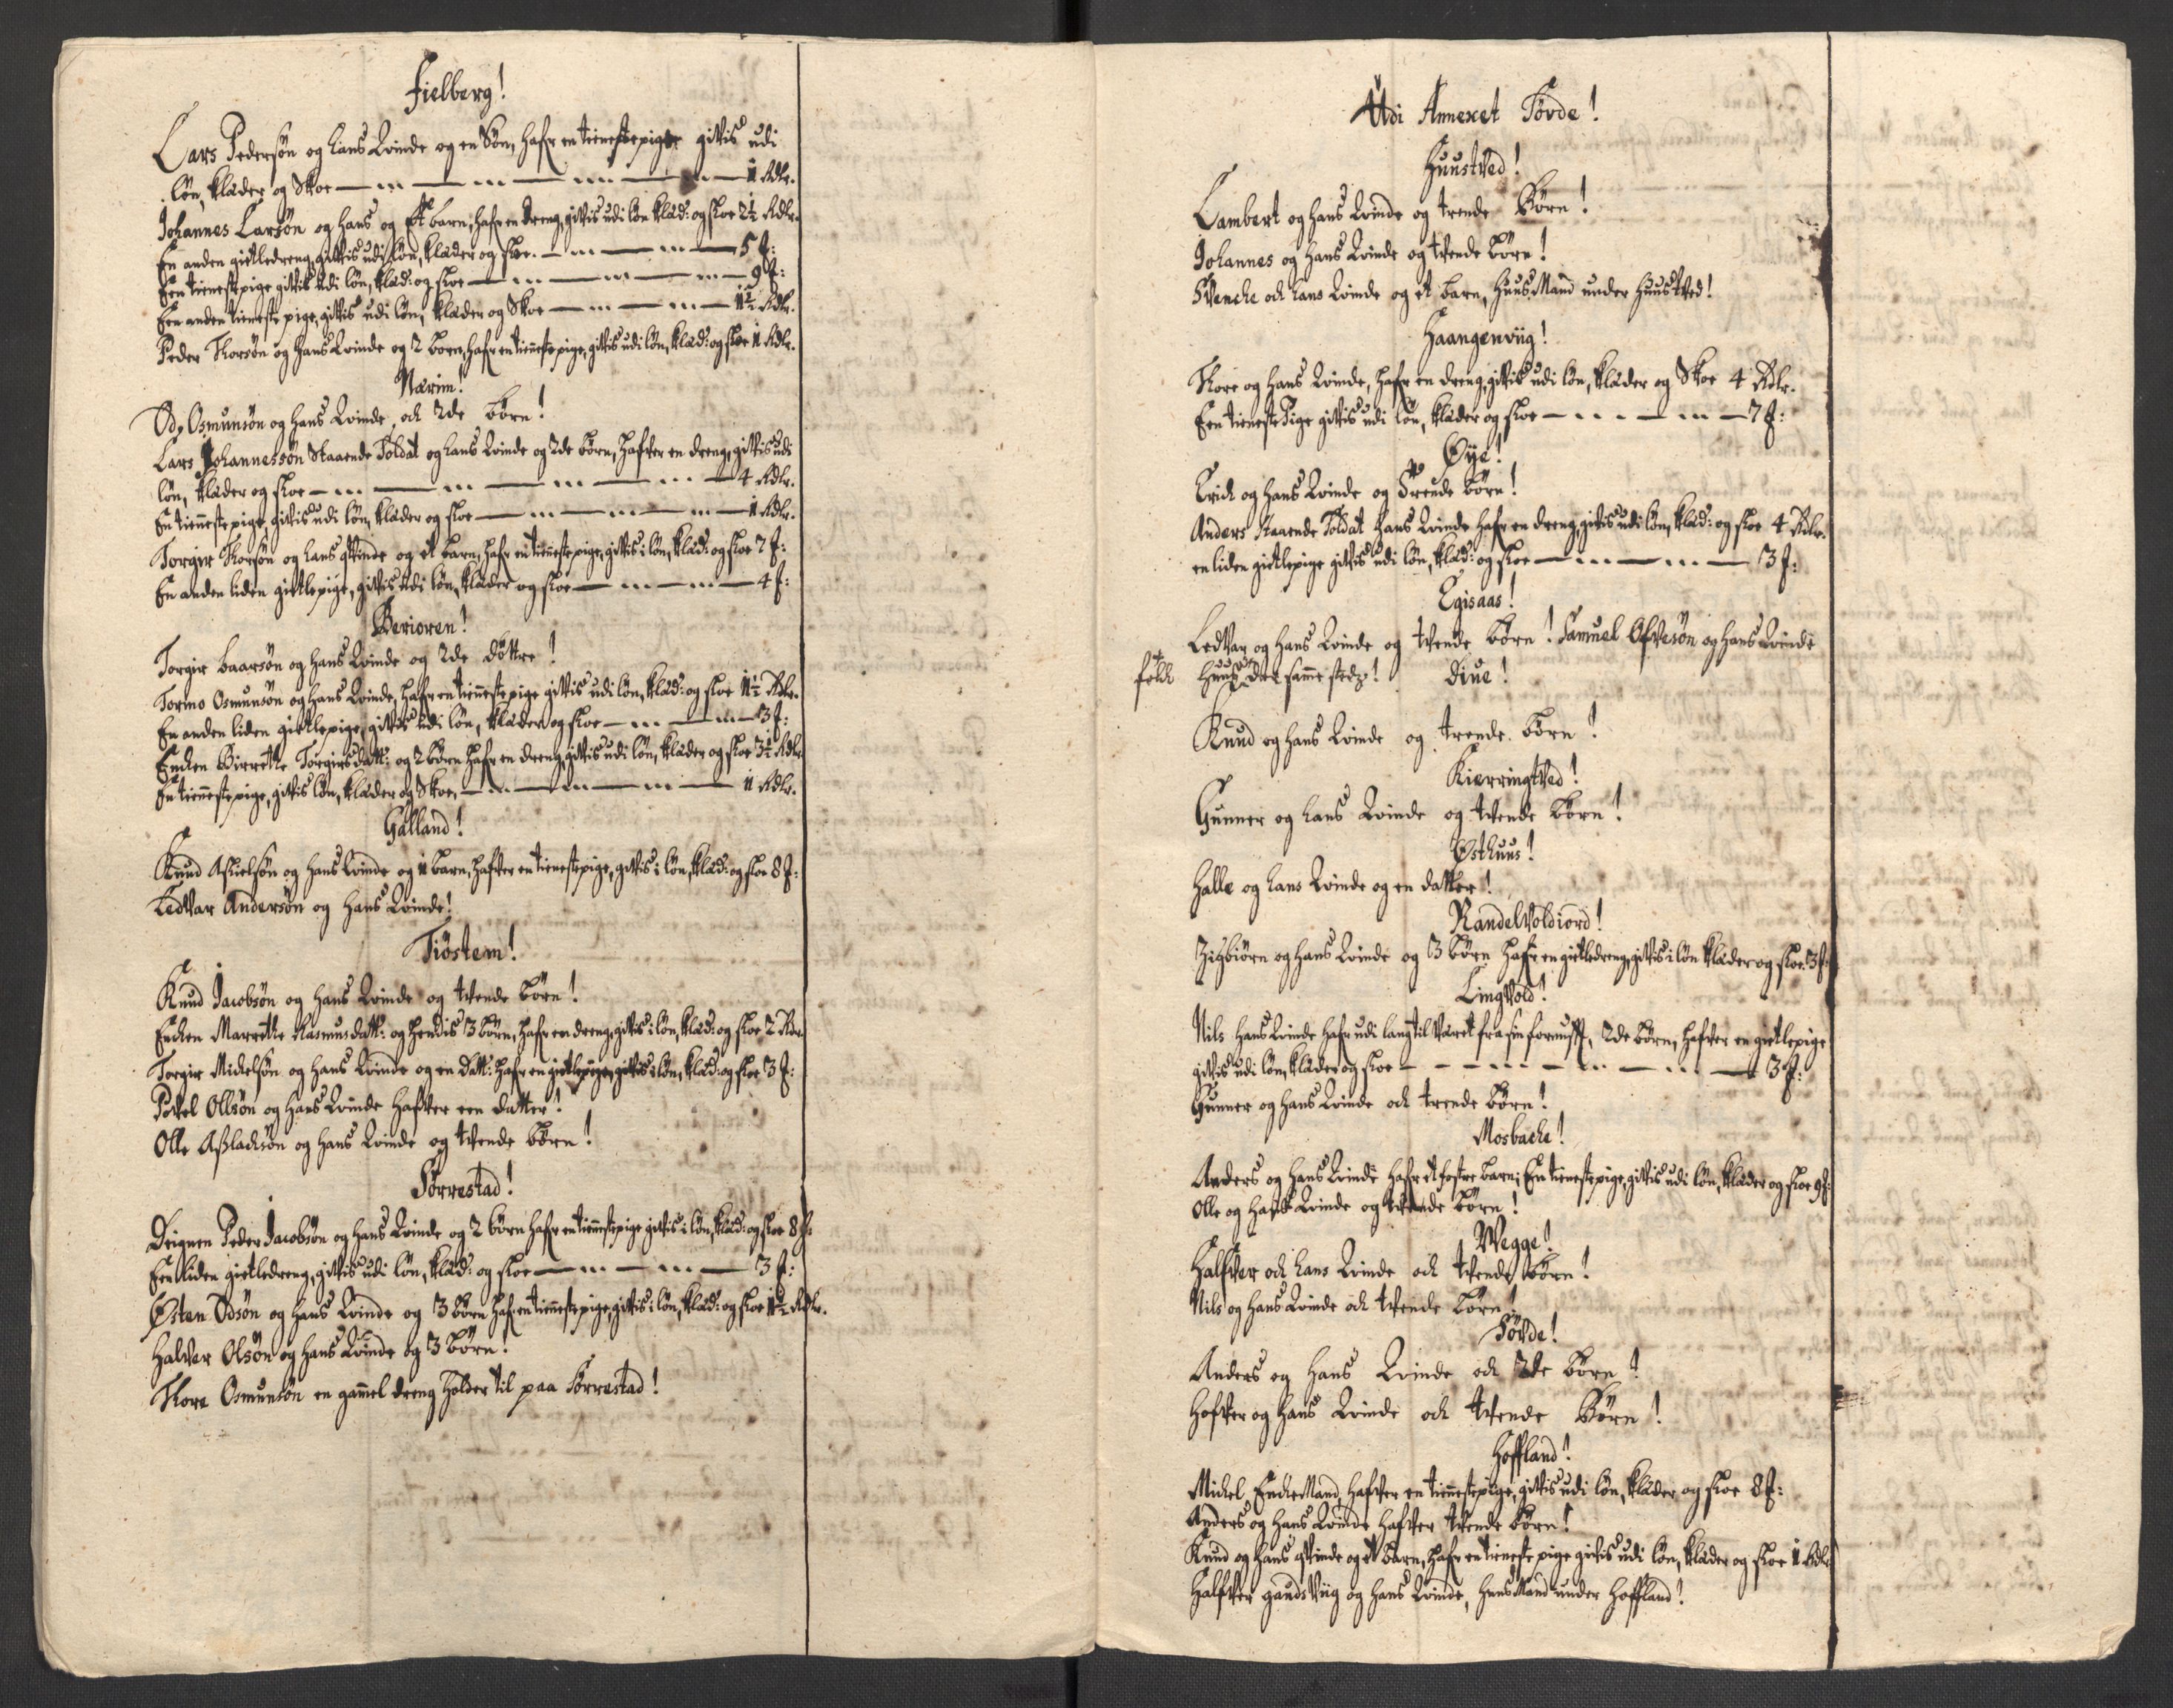 Fielberg!
Lars Pedersøn og hans Qvinde og en Søn, hafr en tienestepige givis udi
løn, klæder og Skoe — 1 Rdlr.
Johannes Larsøn og hans og Et barn, hafr en dreng, givis udi løn klæd: og skoe 2½ Rdlr.
En anden gietledreng, givis udi løn, klæder og skoe — 5 f:
Een tienestepige givis udi løn, klæd: og skoe — 9 f:
Een anden tieneste pige, givis udi løn, klæder og Skoe — 1½ Rdlr.
Peder Thorsøn og hans Qvinde og 2 born, hafr en tienestepige, givis udi løn, klæd: og skoe 1 Rdlr.
Nærim!
Od, Osmunsøn og hans Qvinde, och 2de børn!
Lars Johannessøn Staaende Soldat og hans Qvinde og 2de børn, hafver en dreng, givis udi
løn, klæder og skoe — 4 Rdlr.
En tienestepige, givis udi løn, klæder og skoe — 1 Rdlr.
Torgir Thorsøn og hans qvinde og et barn, hafr en tienestepige, givis i løn, klæd: og skoe 7 f:
En anden liden gietlepige, givis udi løn, klæder og skoe — 4 f:
Berioren!
Torgir baarsøn og hans Qvinde og 2de døttre!
Tormo Osmunsøn og hans Qvinde, hafr en tienestepige givis udi løn, klæd: og skoe 1½ Rdlr.
En anden liden gietlepige, givis udi løn, klæder og skoe — 3 f:
Enchen Birrethe Torgirsdatt: og 2 børn hafr en dreng, givis udi løn, klæder og skoe 3½ Rdlr.
En tienestepige, givis løn, klæder og Skoe, — 1 Rdlr.
Galland!
Knud Asuelsøn og hans Qvinde og 1 barn, hafver en tienestepige, givis i løn, klæd: og skoe 8 f:
Ledvar Andersøn og hans Qvinde!
Tiøstem!
Knud Jacobsøn og hans Qvinde og tvende børn!
Enchen Marrethe Rasmusdatt: og hendis 3 børn, hafr en dreng, givis i løn, klæd: og skoe 2 Rdr
Torgir Michelsøn og hans Qvinde og en datt: hafr en gietlepige, givis i løn, klæd: og skoe 3 f:
Povel Ollsøn og hans Qvinde hafver een datter!
Olle Asslachsøn og hans Qvinde og tvende børn!
Sørrestad!
Deignen Peder Jacobsøn og hans Qvinde og 2 børn hafr en tienestepige givis i løn, klæd: og skoe 8 f:
Een liden gietledreng, givis udi løn, klæd: og skoe — 3 f:
Østen Odsøn og hans Qvinde og 3 børn hafr en tienestepige, givis i løn, klæd: og skoe 1½ Rdlr.
Halver Olsøn og hans Qvinde og 3 børn!
Thore Osmunsøn en gammel dreng holder til paa Sørrestad!
Udi Annexet Søvde!
Huustved!
Lambert og hans Qvinde og trende Børn!
Johannes og hans Qvinde og tvende børn!
Svenche och hans Qvinde og et barn, HuusMand under Huustved!
Haangenviig!
Thore og hans Qvinde, hafr en dreng, givis udi løn, klæder og Skoe 4 Rdlr.
Een tieneste Pige givis udi løn, klæder og skoe — 7 f:
Øye!
Erich og hans Qvinde og Trende børn!
Anders Staaende Soldat hans Qvinde hafr en dreng, givis udi løn, klæd: og skoe 4 Rdlr.
en liden gietlepige givis udi løn, klæd: og skoe — 3 f:
Egisaas!
Ledvar og hans Qvinde og tvende børn! Samuel Ofvesøn og hans Qvinde
folch Huus der samme stedz! Diue!
Knud og hans Qvinde og trende børn!
Kierringtved!
Gunner og hans Qvinde og tvende børn!
Østhuus!
Halle og hans Qvinde og en datter!
Randelvoldiord!
Zizbiørn og hans Qvinde og 3 børn hafr en gietledreng, givis i løn klæder og skoe 3 f:
Lingvold!
Nils hans Qvinde hafr udi lang til været fra sin fornufft, 2de børn, hafver en gietlepige
givis udi løn, klæder og skoe — 3 f:
Gunner og hans Qvinde och trende børn!
Mosbache!
Anders og hans Qvinde hafr et fostre barn; Een tienestepige, givis udi løn, klæder og skoe 9 f:
Olle og hans Qvinde og tvende børn!
Wegge!
Halfver och hans Qvinde och tvende børn!
Nils og hans Qvinde och tvende børn!
Søvde!
Anders og hans Qvinde och 2de børn!
Hofver og hans Qvinde och tvende Børn!
Hoffland!
Michel EncheMand, hafver en tienestepige, givis udi løn, klæder og skoe 8 f:
Anders og hans Qvinde hafver tvende børn!
Knud og hans qvinde og et barn, hafr en tieneste pige givis udi løn, klæder og skoe 1 Rdlr
Halfver gaudsviig og hans Qvinde, HuusMand under Hoffland!